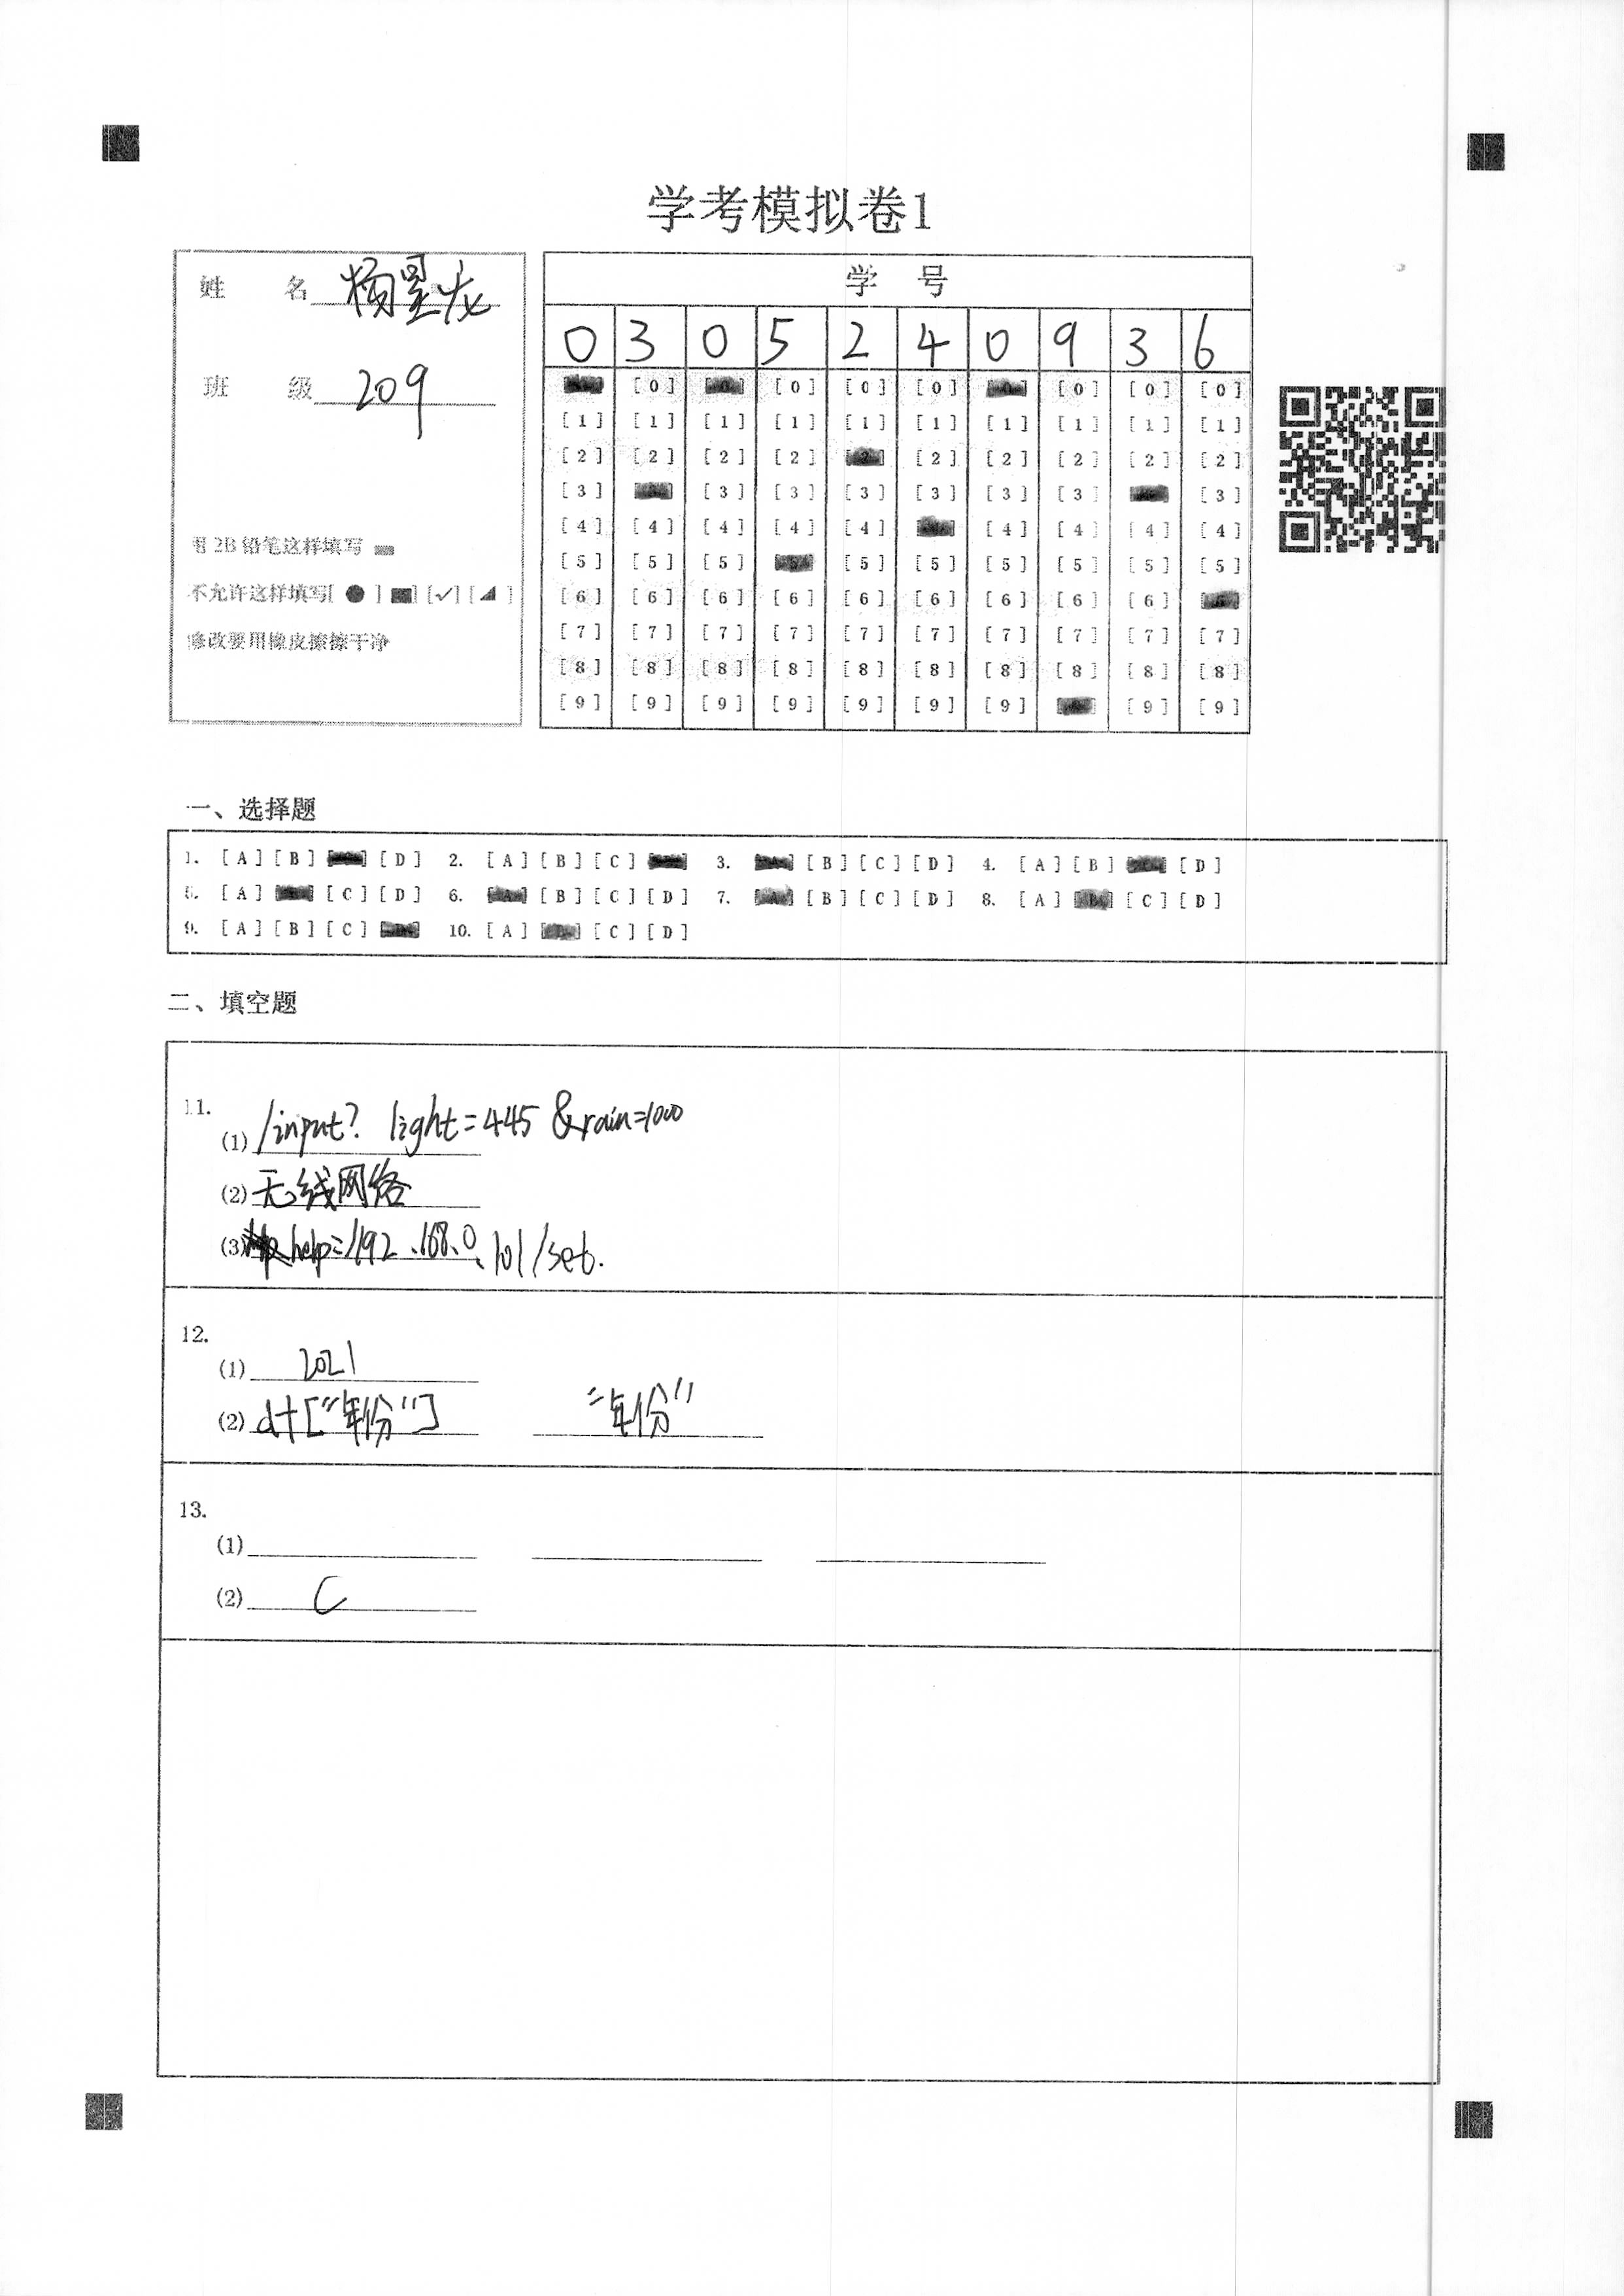 学考模拟卷1
姓 名 杨星龙
班 级 209
用2B铅笔这样填写
不允许这样填写[●] [■] [✓] [◢]
修改要用橡皮擦擦干净
学 号
0 3 0 5 2 4 0 9 3 6
[0] [0] [0] [0] [0] [0] [0]
[1] [1] [1] [1] [1] [1] [1] [1] [1] [1]
[2] [2] [2] [2] [2] [2] [2] [2] [2] [2]
[3] [3] [3] [3] [3] [3] [3] [3]
[4] [4] [4] [4] [4] [4] [4] [4] [4]
[5] [5] [5] [5] [5] [5] [5] [5] [5]
[6] [6] [6] [6] [6] [6] [6] [6] [6]
[7] [7] [7] [7] [7] [7] [7] [7] [7] [7]
[8] [8] [8] [8] [8] [8] [8] [8] [8] [8]
[9] [9] [9] [9] [9] [9] [9] [9] [9]
一、选择题
1. [A] [B] [D] 2. [A] [B] [C] 3. [B] [C] [D] 4. [A] [B] [D]
5. [A] [C] [D] 6. [A] [B] [C] [D] 7. [A] [B] [C] [D] 8. [A] [B] [C] [D]
9. [A] [B] [C] 10. [A] [B] [C] [D]
二、填空题
11.
(1) /input? light=445 &rain=1000
(2) 无线网络
(3) help=//192.168.0.101/set.
12.
(1) 2021
(2) df["年份"] "年份"
13.
(1)
(2) C